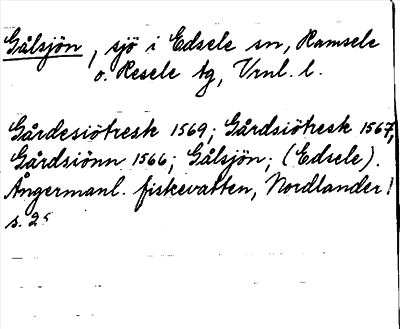 Gålsjön, sjö i Edsele sn, Ramsele
o. Resele tg, Vrnl. l.
Gårdesiötresk 1569; Gårdsiötresk 1567,
Gårdsiönn 1566; Gålsjön; (Edsele).
Ångermanl. fiskevatten, Nordlander!
s. 25